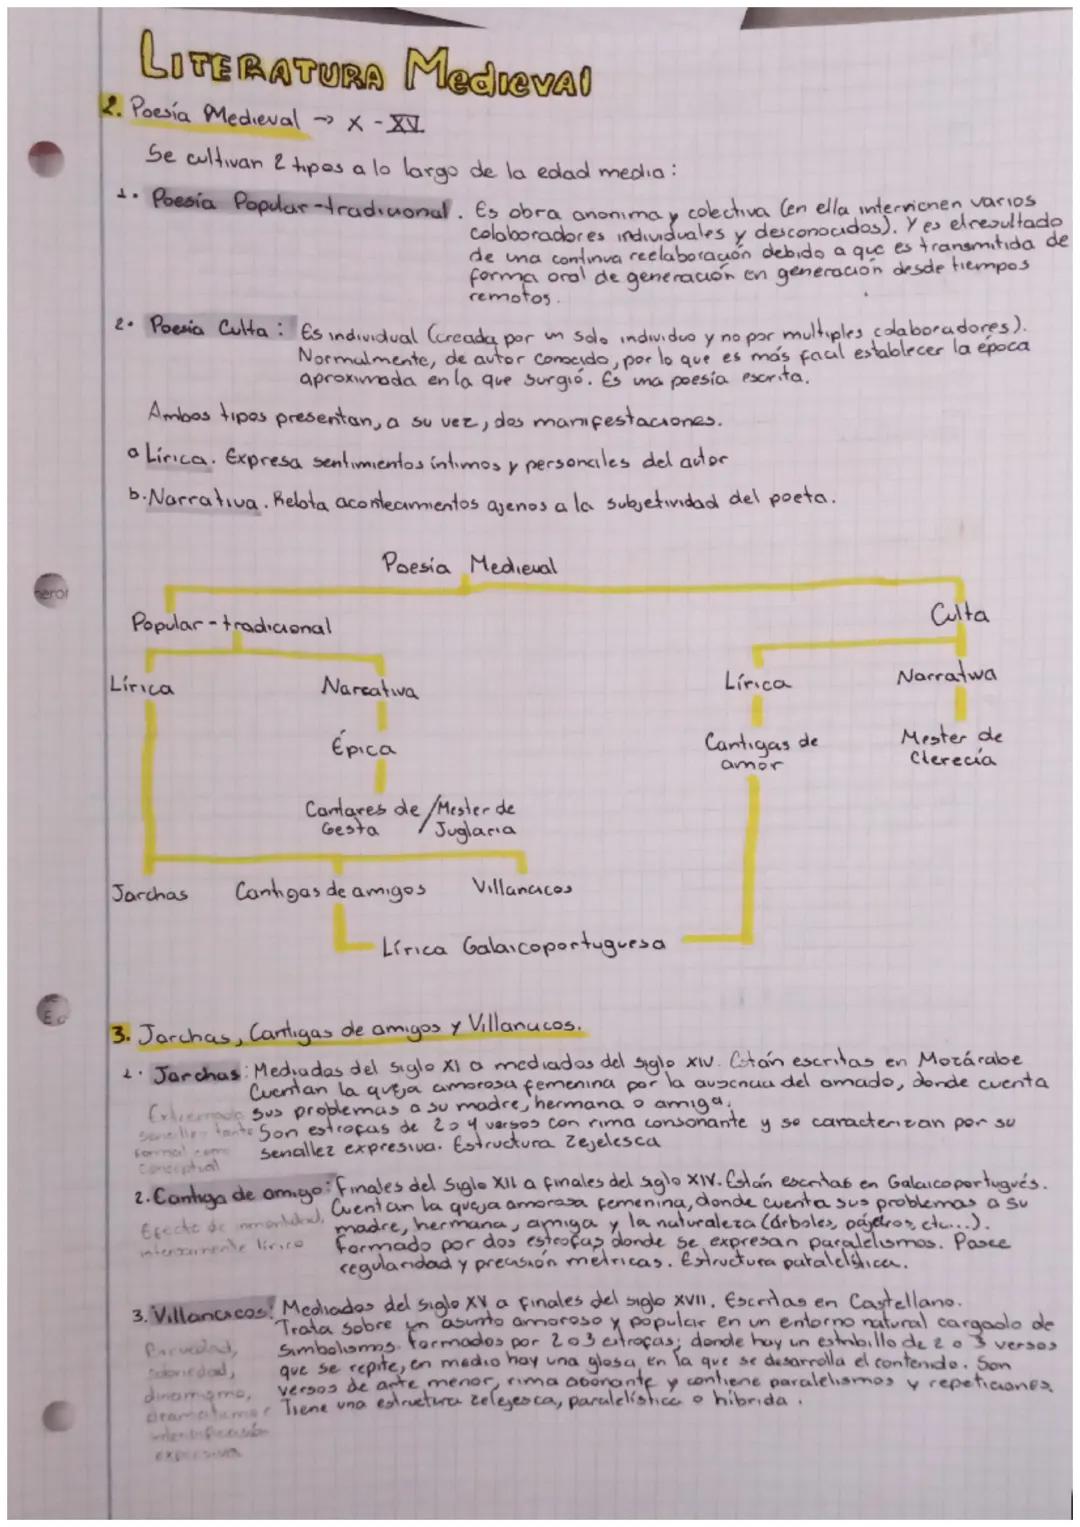 LITERATURA MedIeVAl
2. Poesía Medieval → X - XV
Se cultivan 2 tipos a lo largo de la edad media:
1. Poesía Popular-tradicional. Es obra anonima y colectiva (en ella intervienen varios
colaboradores individuales y desconocidos). Y es el resultado
de una continua reelaboración debido a que es transmitida de
forma oral de generación en generación desde tiempos
remotos.
2. Poesía Culta: Es individual (creada por un solo individuo y no por multiples colaboradores).
Normalmente, de autor conocido, por lo que es más facil establecer la época
aproximada en la que surgió. Es una poesía escrita.
Ambos tipos presentan, a su vez, dos manifestaciones.
a Lírica. Expresa sentimientos íntimos y personales del autor
b. Narrativa. Relata acontecimientos ajenos a la subjetividad del poeta.
Poesía Medieval
Popular-tradicional
Culta
Lírica
Narrativa
Lírica
Narrativa
Épica
Cantigas de
amor
Mester de
Clerecía
Cantares de / Mester de
Gesta Juglaria
Jarchas Cantigas de amigos Villancicos
Lírica Galaicoportuguesa
3. Jarchas, Cantigas de amigos y Villancicos.
1. Jarchas: Mediados del siglo XI a mediados del siglo XIV. Están escritas en Mozárabe
Cuentan la queja amorosa femenina por la ausencia del amado, donde cuenta
sus problemas a su madre, hermana o amiga.
Son estrofas de 2 o 4 versos con rima consonante y se caracterizan por su
sencillez expresiva. Estructura Zejelesca
tanto
formal como
conceptual
2. Cantiga de amigo: Finales del Siglo XII a finales del siglo XIV. Están escritas en Galaicoportugués.
Cuentan la queja amorosa femenina, donde cuenta sus problemas a su
madre, hermana, amiga y la naturaleza (árboles, pájaros, etc...).
Formado por dos estrofas donde se expresan paralelismos. Posee
regularidad y precisión metricas. Estructura paralelística.
Efecto de
intensamente lírico
3. Villancicos: Mediados del siglo XV a finales del siglo XVII. Escritas en Castellano.
Trata sobre un asunto amoroso y popular en un entorno natural cargado de
simbolismos. Formados por 2 o 3 estrofas; donde hay un estribillo de 2 o 3 versos
que se repite, en medio hay una glosa, en la que se desarrolla el contenido. Son
versos de arte menor, rima asonante y contiene paralelismos y repeticiones.
Tiene una estructura zelejesca, paralelística o híbrida.
sobriedad,
dinamismo,
dramatismo e
intensificación
expresiva